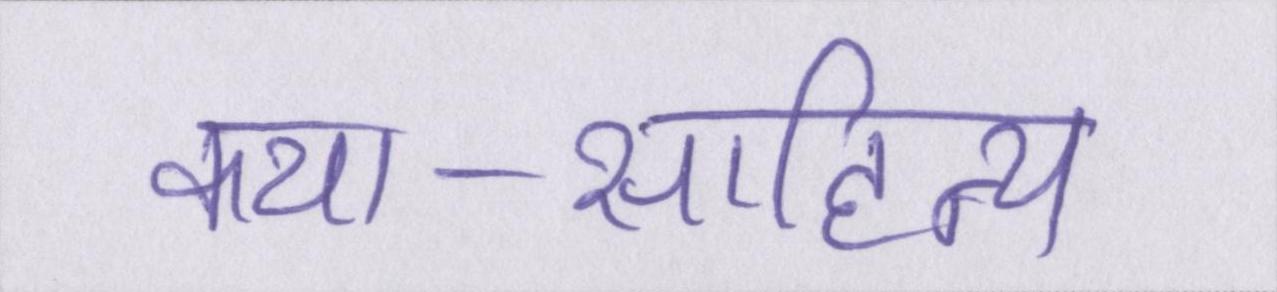 कथा-साहित्य